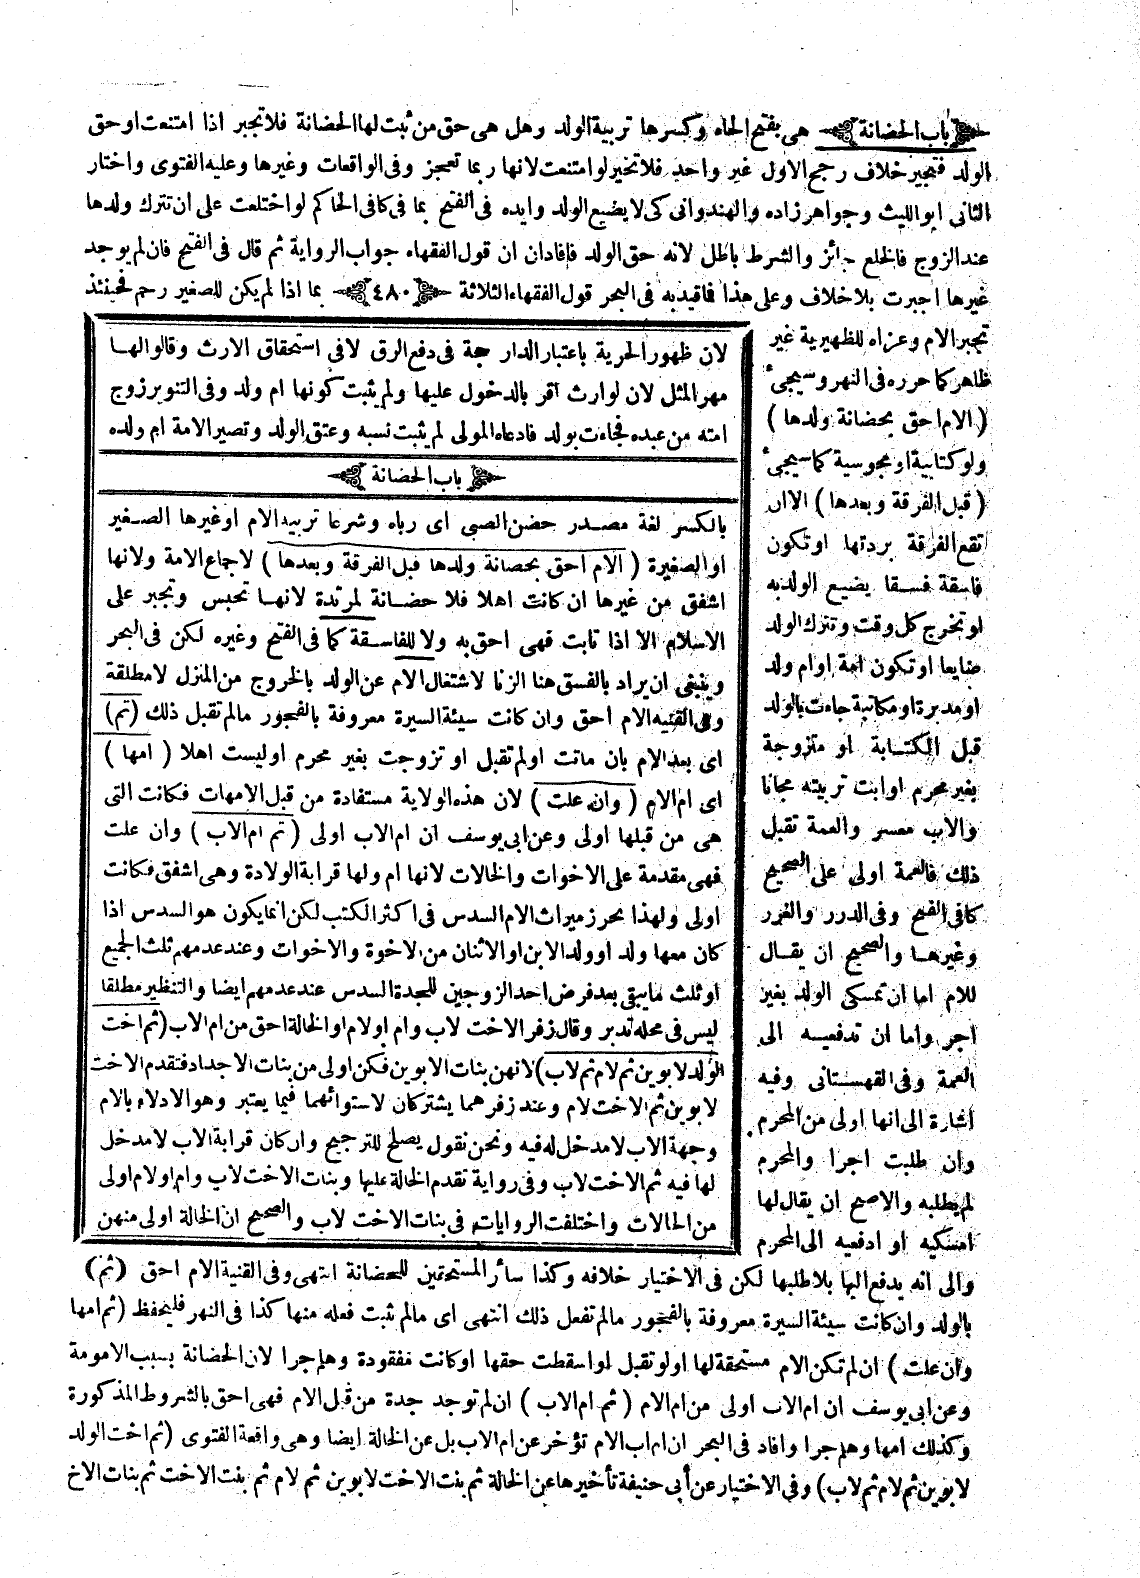 باب الحضانة هى بفتح الحاء وكسرها تربية الولد وهل هى حق من ثبت لها الحضانة فلا تجبر اذا امتنعت او حق
الولد فتجبر خلاف رجح الاول غير واحد فلا تخير لو امتنعت لانها ربما تعجز وفى الواقعات وغيرها وعليه الفتوى واختار
الثانى ابو الليث وجواهر زاده والهندوانى كى لا يضيع الولد وايده فى الفتح بما فى كافى الحاكم لو اختلعت على ان تترك ولدها
عند الزوج فالخلع جائز والشرط باطل لانه حق الولد فافاد ان قول الفقهاء جواب الرواية ثم قال فى الفتح فان لم يوجد
غيرها اجبرت بلا خلاف وعلى هذا فاقيد به فى البحر قول الفقهاء الثلاثة ٤٨٠ بما اذا لم يكن للصغير رحم فحينئذ
تجبر الام وعزاه للظهيرية غير
ظاهر كما حرره فى النهر وسيجىء
(الام احق بحضانة ولدها)
ولو كتابية او مجوسية كما سيجىء
(قبل الفرقة وبعدها) الا ان
تقع الفرقة بردتها او تكون
فاسقة فسقا يضيع الولد به
او تخرج كل وقت وتترك الولد
ضايعا او تكون امة او ام ولد
او مدبرة او مكاتبة جاءت بالولد
قبل الكتابة او متزوجة
بغير محرم او ابت تربيته مجانا
والاب معسر والعمة تقبل
ذلك فالعمة اولى على الصحيح
كما فى الفتح وفى الدرر والغرر
وغيرها والصحيح ان يقال
للام اما ان تمسكى الولد بغير
اجر واما ان تدفعيه الى
العمة وفى القهستانى وفيه
اشارة الى انها اولى من المحرم
وان طلبت اجرا والمحرم
لم يطلبه والاصح ان يقال لها
امسكيه او ادفعيه الى المحرم
لان ظهور الحرية باعتبار الدار حجة فى دفع الرق لا فى استحقاق الارث وقالوا لها
مهر المثل لان لوارث اقر بالدخول عليها ولم يثبت كونها ام ولد وفى التنوير زوج
امته من عبده فجاءت بولد فادعاه المولى لم يثبت نسبه وعتق الولد وتصير الامة ام ولده
باب الحضانة
بالكسر لغة مصدر حضن الصبى اى رباه وشرعا تربية الام او غيرها الصغير
او الصغيرة (الام احق بحضانة ولدها قبل الفرقة وبعدها) لاجماع الامة ولانها
اشفق من غيرها ان كانت اهلا فلا حضانة لمرتدة لانها تحبس وتجبر على
الاسلام الا اذا تابت فهى احق به ولا للفاسقة كما فى الفتح وغيره لكن فى البحر
وينبغى ان يراد بالفسق هنا الزنا لاشتغال الام عن الولد بالخروج من المنزل لا مطلقة
وفى القنيه الام احق وان كانت سيئة السيرة معروفة بالفجور مالم تقبل ذلك (ثم)
اى بعد الام بان ماتت او لم تقبل او تزوجت بغير محرم او ليست اهلا (امها)
اى ام الام (وان علت) لان هذه الولاية مستفادة من قبل الامهات فكانت التى
هى من قبلها اولى وعن ابى يوسف ان ام الاب اولى (ثم ام الاب) وان علت
فهى مقدمة على الاخوات والخالات لانها ام ولها قرابة الولادة وهى اشفق فكانت
اولى ولهذا يحرز ميراث الام السدس فى اكثر الكتب لكن انما يكون هو السدس اذا
كان معها ولد او ولد الابن او الاثنان من الاخوة والاخوات وعند عدمهم ثلث الجميع
او ثلث ما يبقى بعد فرض احد الزوجين للجدة السدس عند عدمهم ايضا والتنظير مطلقا
ليس فى محله تدبر وقال زفر الاخت لاب وام او لام او الخالة احق من ام الاب (ثم اخت
الولد لابوين ثم لام ثم لاب) لانهن بنات الابوين فكن اولى من بنات الاجداد فتقدم الاخت
لابوين ثم الاخت لام وعند زفر هما يشتركان لاستوائهما فيما يعتبر وهو الادلاء بالام
وجهة الاب لا مدخل له فيه ونحن نقول يصلح للترجيح وان كان قرابة الاب لا مدخل
لها فيه ثم الاخت لاب وفى رواية تقدم الخالة عليها وبنات الاخت لاب وام او لام اولى
من الخالات واختلفت الروايات فى بنات الاخت لاب والصحيح ان الخالة اولى منهن
والى انه يدفع اليها بلا طلبها لكن فى الاختيار خلافه وكذا سائر المستحقين للحضانة انتهى وفى القنية الام احق (ثم)
بالولد وان كانت سيئة السيرة معروفة بالفجور مالم تفعل ذلك انتهى اى مالم ثبت فعله منها كذا فى النهر فليحفظ (ثم امها
وان علت) ان لم تكن الام مستحقة لها او لو تقبل لو اسقطت حقها او كانت مفقودة وهلم جرا لان الحضانة بسبب الامومة
وعن ابى يوسف ان ام الاب اولى من ام الام (ثم ام الاب) ان لم توجد جدة من قبل الام فهى احق بالشروط المذكورة
وكذلك امها وهلم جرا وافاد فى البحر ان ام اب الام تؤخر عن ام الاب بل عن الخالة ايضا وهى واقعة الفتوى (ثم اخت الولد
لابوين ثم لام ثم لاب) وفى الاختيار عن أبى حنيفة تأخيرها عن الخالة ثم بنت الاخت لابوين ثم لام ثم بنت الاخت ثم بنات الاخ